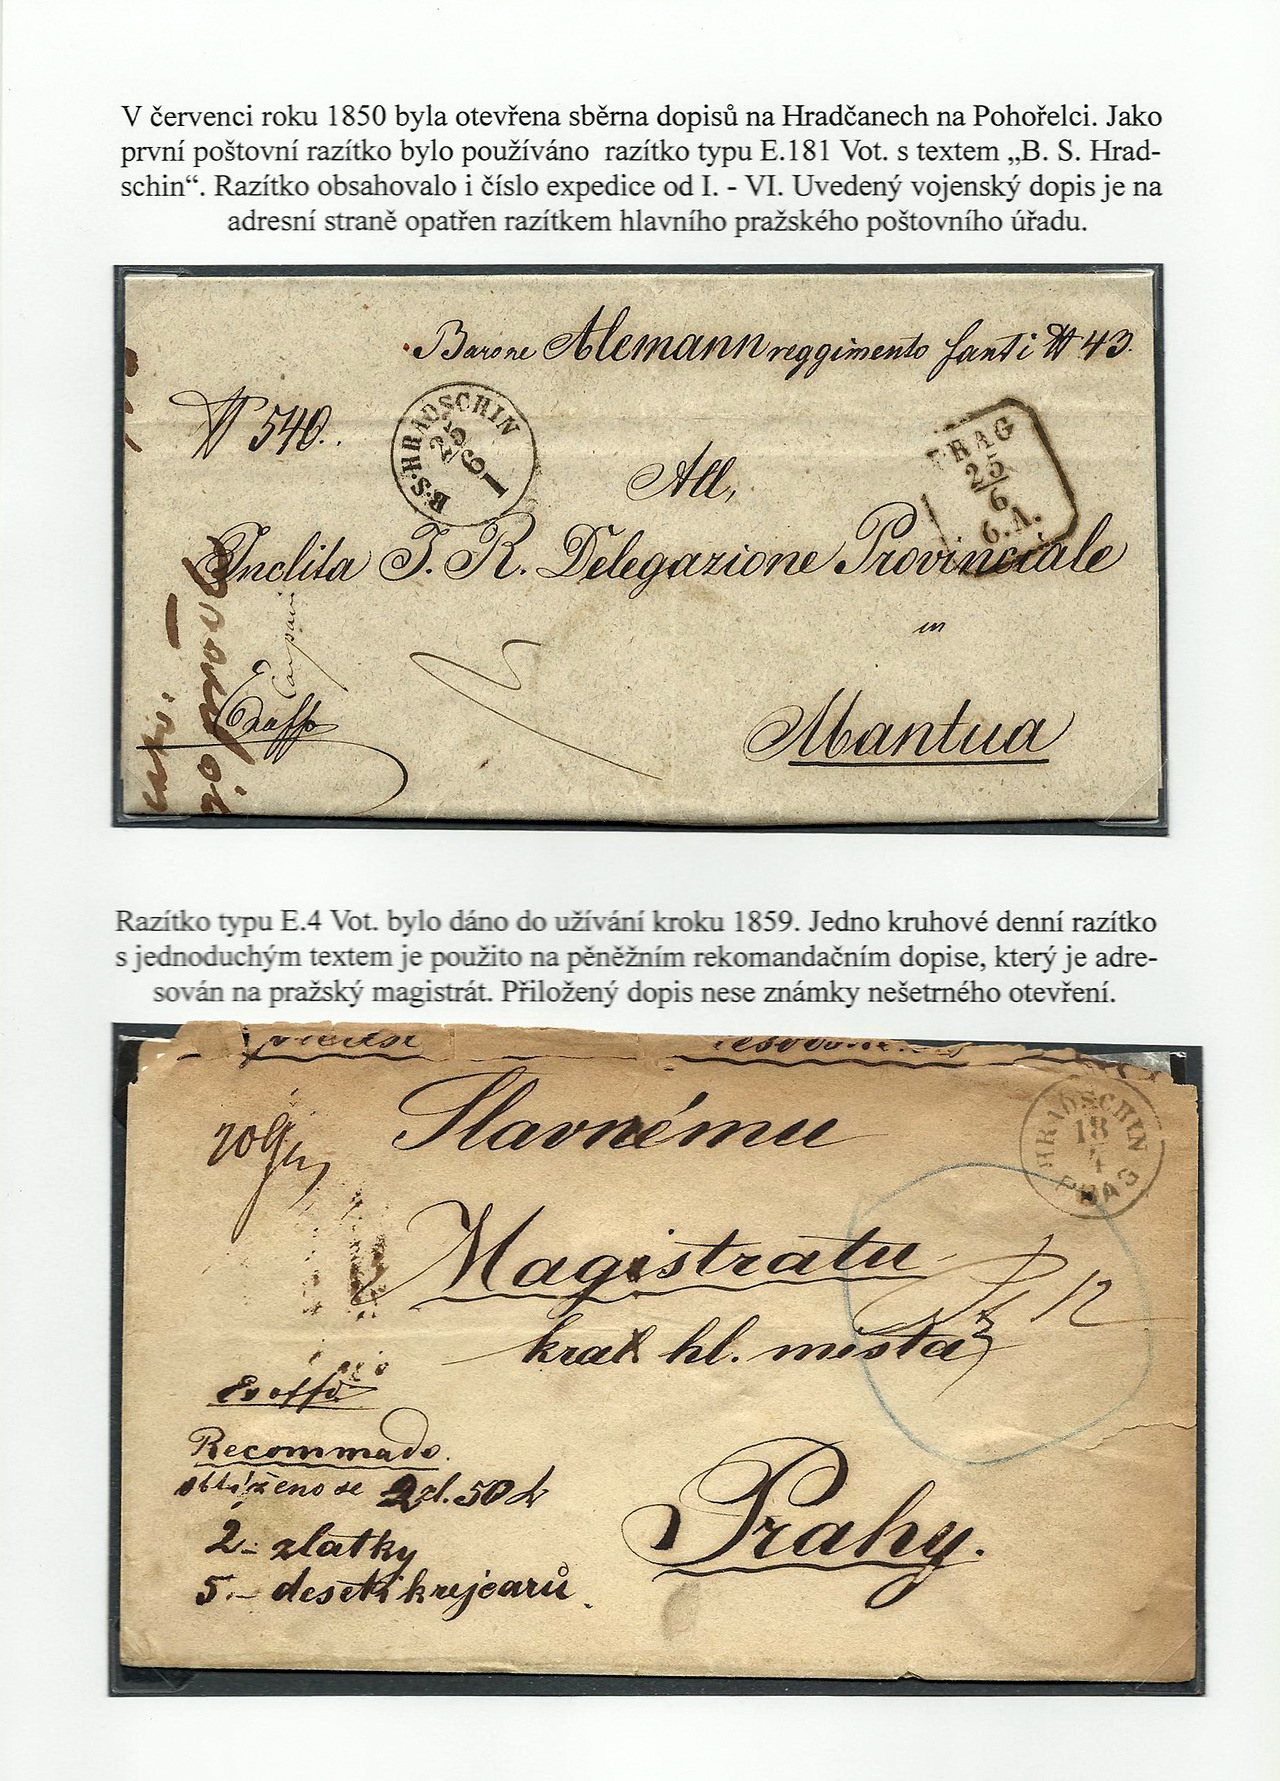 V červenci roku 1850 byla otevřena sběrna dopisů na Hradčanech na Pohořelci. Jako
první poštovní razítko bylo používáno razítko typu E.181 Vot. s textem „B. S. Hrad-
schin“. Razítko obsahovalo i číslo expedice od I. - VI. Uvedený vojenský dopis je na
adresní straně opatřen razítkem hlavního pražského poštovního úřadu.
Barone Alemann reggimento fanti № 43.
№ 540.
B·S·HRADSCHIN
25
6
I
PRAG
25
6
6.A.
All,
Inclita I. R. Delegazione Provinciale
in
Mantua
Razítko typu E.4 Vot. bylo dáno do užívání kroku 1859. Jedno kruhové denní razítko
s jednoduchým textem je použito na pěněžním rekomandačním dopise, který je adre-
sován na pražský magistrát. Přiložený dopis nese známky nešetrného otevření.
HRADSCHIN
18
4
PRAG
Slavnému
Magistratu
kral hl. města
12
Exoffo
Recommado.
obtíženo se 2 zl. 50 k
2.- zlatky
5.- desetikrejcarů.
Prahy.